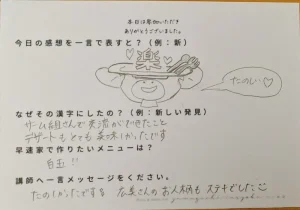 本日は参加いただき
ありがとうございました。
今日の感想を一言で表すと？（例：新）
楽
たのしい♡
なぜその漢字にしたの？（例：新しい発見）
チーム組んで交流ができたこと
デザートもとても美味しかったです
早速家で作りたいメニューは？
白玉!!
講師へ一言メッセージをください。
たのしかったですする
広美さんのお人柄もステキでした